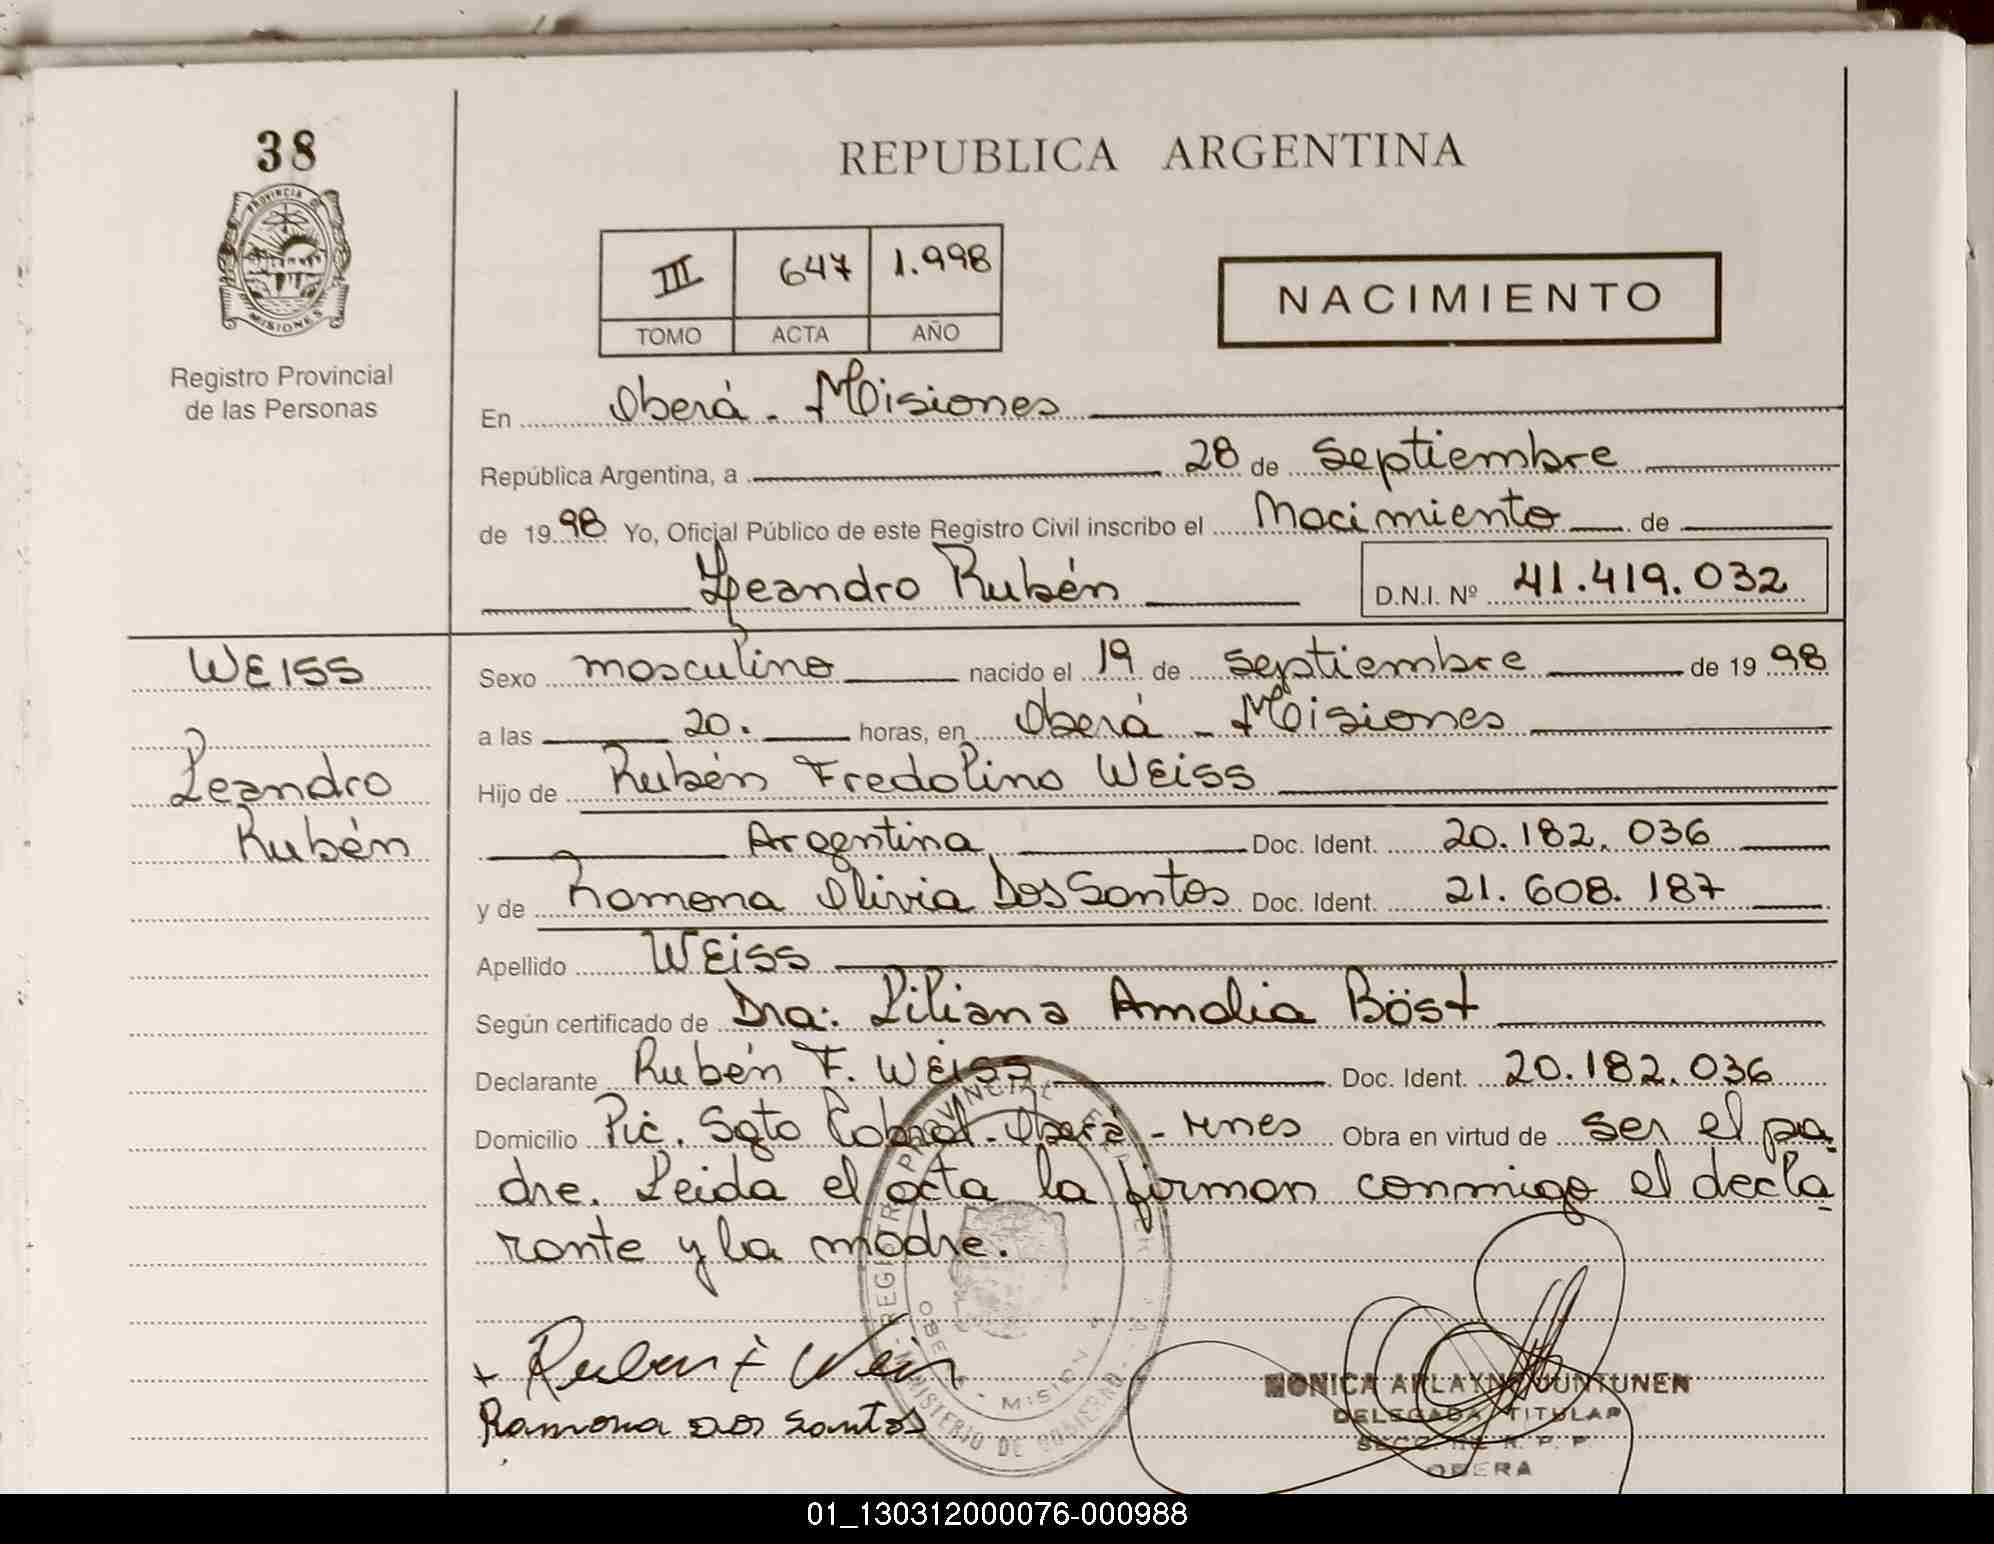 38
PROVINCIA D
MISIONES
Registro Provincial
de las Personas
REPUBLICA ARGENTINA
III 647 1.998
TOMO ACTA AÑO
NACIMIENTO
En Oberá - Misiones
República Argentina, a 28 de Septiembre
de 1998 Yo, Oficial Público de este Registro Civil inscribo el Nacimiento de
Leandro Rubén D.N.I. Nº 41.419.032
WEISS
Leandro
Rubén
Sexo masculino nacido el 19 de Septiembre de 1998
a las 20. horas, en Oberá - Misiones
Hijo de Rubén Fredolino Weiss
Argentina Doc. Ident. 20.182.036
y de Ramona Olivia Dos Santos Doc. Ident. 21.608.187
Apellido Weiss
Según certificado de Dra: Liliana Amalia Böst
Declarante Rubén F. Weiss Doc. Ident. 20.182.036
Domicilio Pic. Sgto Cabral - Oberá - Mnes Obra en virtud de ser el pa-
dre. Leida el acta la firman conmigo el decla-
rante y la madre.
REGISTRO PROVINCIAL
MINISTERIO DE GOBIERNO
+ Ruben F Weiss
Ramona Dos Santos
MONICA JUNTUNEN
DELEGADA TITULAR
SECC. R. P. P.
OBERA
01_130312000076-000988